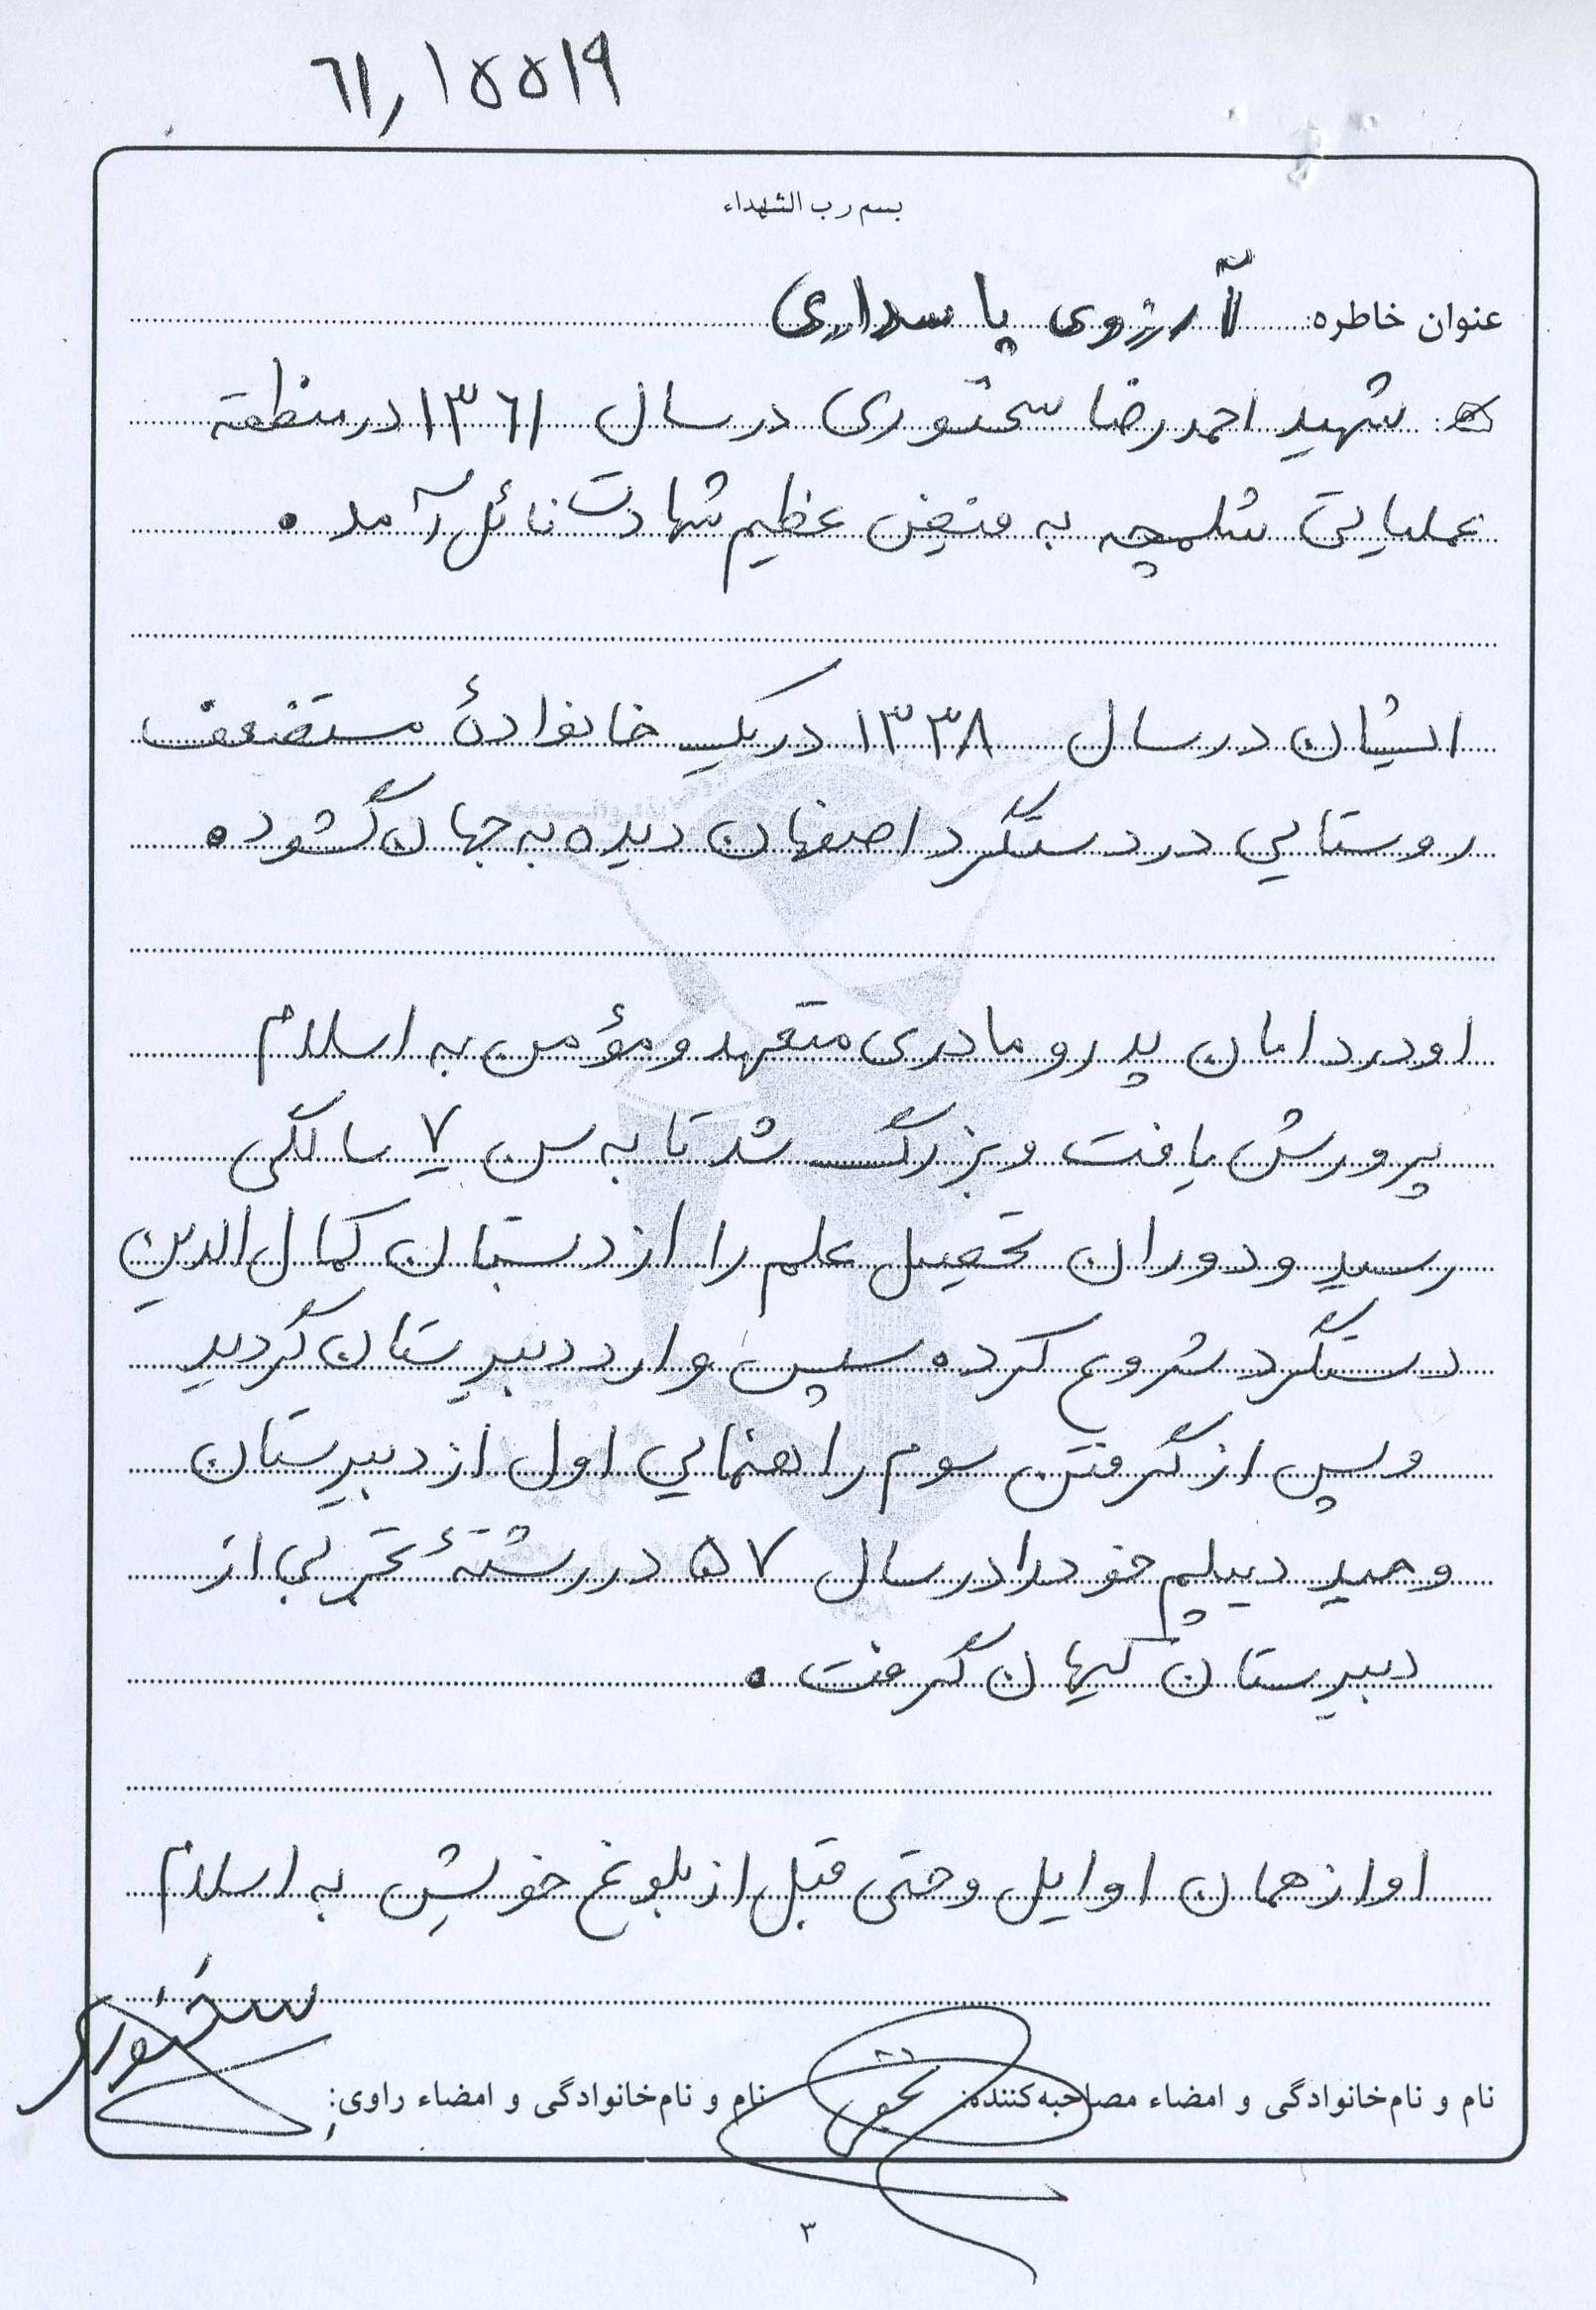 ۶۱٫۱۵۵۱۹
بسم رب الشهداء
عنوان خاطره: آرزوی پاسداری
شهید احمد رضا سخنوری در سال ۱۳۶۱ در منطقه
عملیاتی شلمچه به فیض عظیم شهادت نائل آمد.
ایشان در سال ۱۳۳۸ در یک خانوادهٔ مستضعف
روستایی در دستگرد اصفهان دیده به جهان گشود.
او در دامان پدر و مادری متعهد و مؤمن به اسلام
پرورش یافت و بزرگ شد تا به سن ۷ سالگی
رسید و دوران تحصیل علم را از دبستان کمال الدین
دستگرد شروع کرده سپس وارد دبیرستان گردید
و پس از گرفتن سوم راهنمایی اول از دبیرستان
وحید دیپلم خود را در سال ۵۷ در رشتهٔ تجربی از
دبیرستان کیهان گرفت.
او از همان اوایل و حتی قبل از بلوغ خویش به اسلام
نام و نام‌خانوادگی و امضاء مصاحبه‌کننده:
نام و نام‌خانوادگی و امضاء راوی: سخنوری
۳